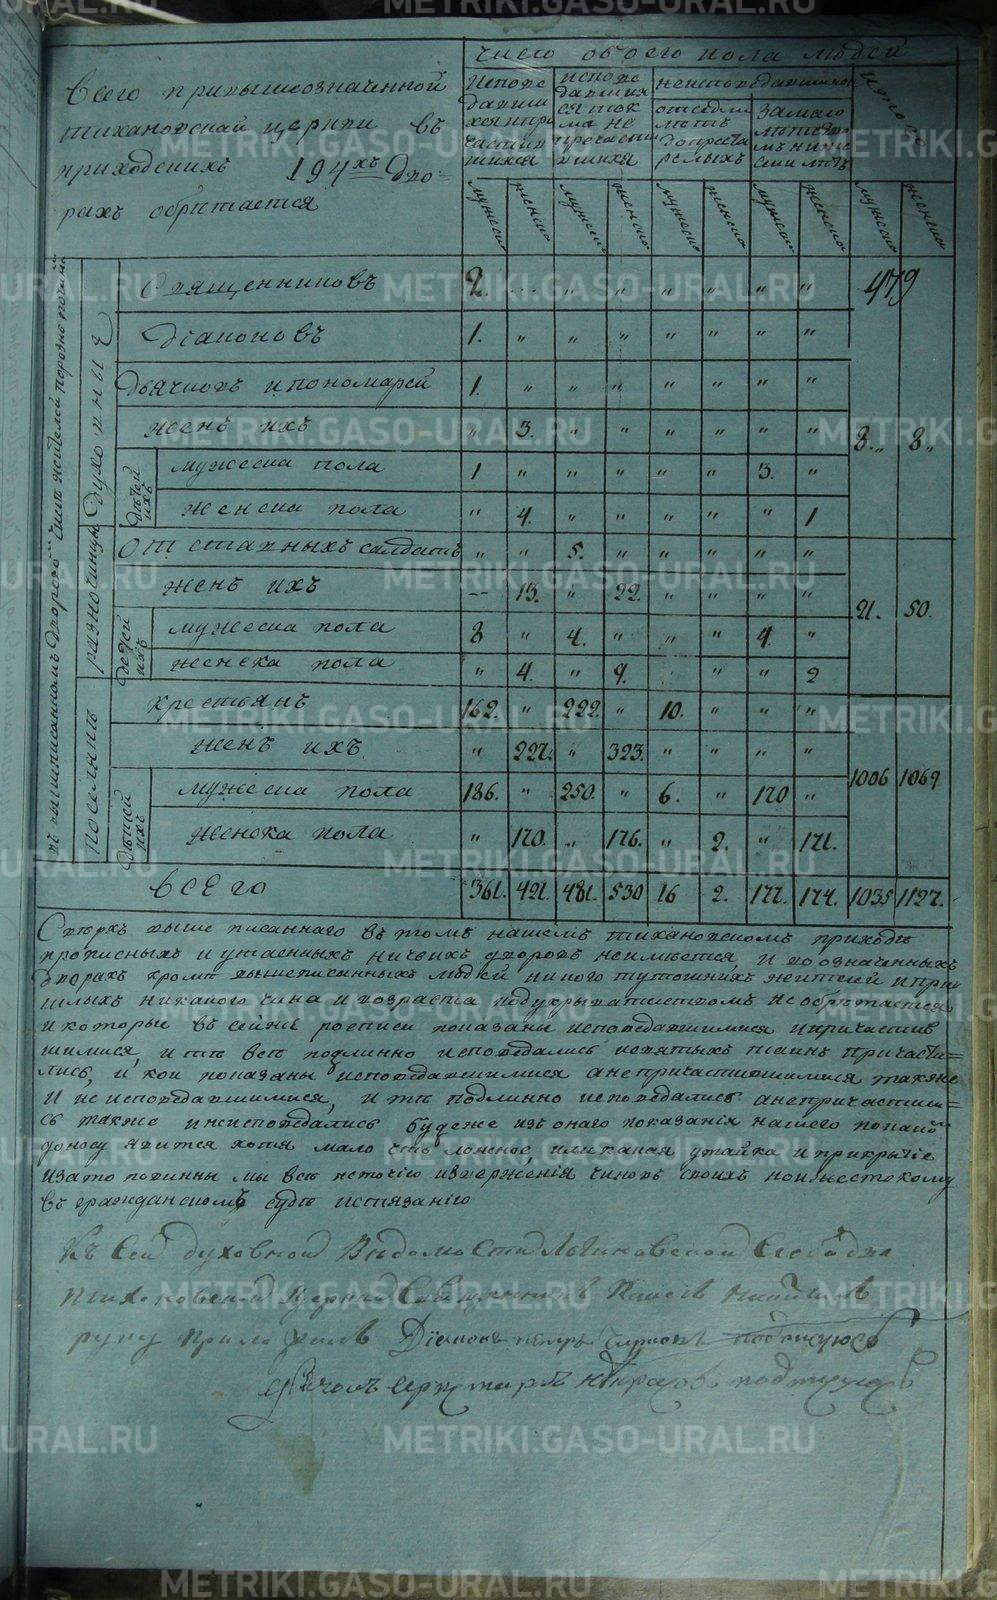 число обоего пола людей
Всего привышеозначенной
тихановской церкви въ
приходскихъ 194хъ дво-
рахъ обретается
исповедавшихся и причастившихся
исповедавшихся токмо не причастившихся
неисповедавшихся
от седми летъ до престарелыхъ
за малолетствомъ ниже семи летъ
итого
мужеска женска мужеска женска мужеска женска мужеска женска мужеска женска
духовные
Священниковъ 2. " " " " " " "
479
діаконовъ 1. " " " " " " "
дьячковъ и пономарей 1. " " " " " " "
женъ ихъ " 3. " " " " " "
8. " 8 "
детей ихъ
мужеска пола 1 " " " " " 3. "
женска пола " 4. " " " " " 1
разночинцы
отставныхъ салдатъ " " 5. " " " " "
женъ ихъ -- 13. " 22. " " " "
21. 50.
детей ихъ
мужеска пола 8 " 4. " " " 4. "
женска пола " 4. " 9. " " 2
поселянъ
крестьянъ 162. " 222. " 10. " " "
женъ ихъ " 227. " 323. " " " "
1006 1069
детей ихъ
мужеска пола 186. " 250. " 6. " 170 "
женска пола " 170. " 176. " 2. " 171.
всего 361. 421. 481. 530 16 2. 177. 174. 1035 1127.
Сверхъ выше писаннаго въ томъ нашемъ тихановскомъ приходе
прописныхъ и утаенныхъ ничьихъ дворовъ неимеется, и во означенныхъ
дворахъ кроме вышеписанныхъ людей никого тутошнихъ жителей и при
шлыхъ никакого чина и возраста подукрывательствомъ необретается
и которые въ сейже росписи показаны исповедавшимися и причастив
шимися, и те все подлинно исповедались исвятыхъ таинъ причасти-
лись, и кои показаны исповедавшимися анепричастившимися также
и не исповедавшимися, и те подлинно исповедались анепричастили-
сь также инеисповедались буде же изъ онаго показанія нашего покакой
доносу явится хотя мало что ложное, или какая утайка и прикрытіе
изато повинны мы все неточію изверженія чиновъ своихъ но и жестокому
въ гражданскомъ суде истязанію
Къ сей духовной ведомости
тихановской церкви священникъ
руку приложилъ Діаконъ петръ подписуюсь
METRIKI.GASO-URAL.RU